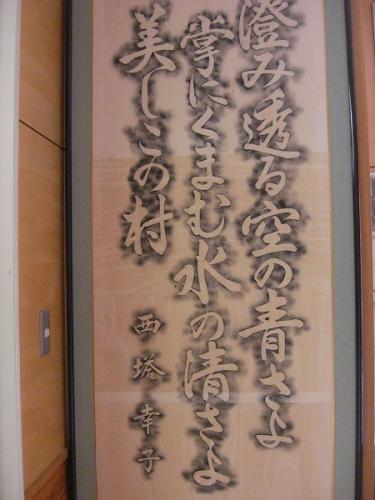 澄み透る空の青さよ
掌にくまむ水の清さよ
美しこの村
西塔幸子